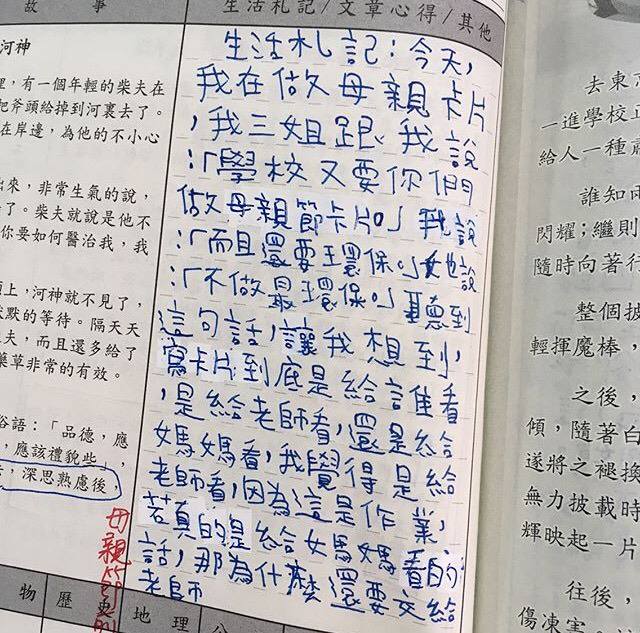 故 事
河神
裡,有一個年輕的柴夫在
把斧頭給掉到河裏去了。
在岸邊,為他的不小心
出來,非常生氣的說,
了。柴夫就說是他不
你要如何醫治我,我
頭上,河神就不見了,
默默的等待。隔天天
夫,而且還多給了
藥草非常的有效。
俗語:「品德,應
,應該禮貌些,
;深思熟慮後
母親節
生活札記/文章心得/其他
生活札記:今天,
我在做母親卡片
,我三姐跟我說
:「學校又要你們
做母親節卡片。」我說
:「而且還要環保。」她說
:「不做最環保。」聽到
這句話,讓我想到,
寫卡片到底是給誰看
,是給老師看,還是給
媽媽看,我覺得是給
老師看,因為這是作業,
若真的是給媽媽看的
話,那為什麼還要交給
老師
物 歷史 地理
去東
一進學校
給人一種
誰知
閃耀;繼則
隨時向著行
整個披
輕揮魔棒,
之後,
傾,隨著白
遂將之褪換
無力披載時
輝映起一片
往後,
傷凍害。